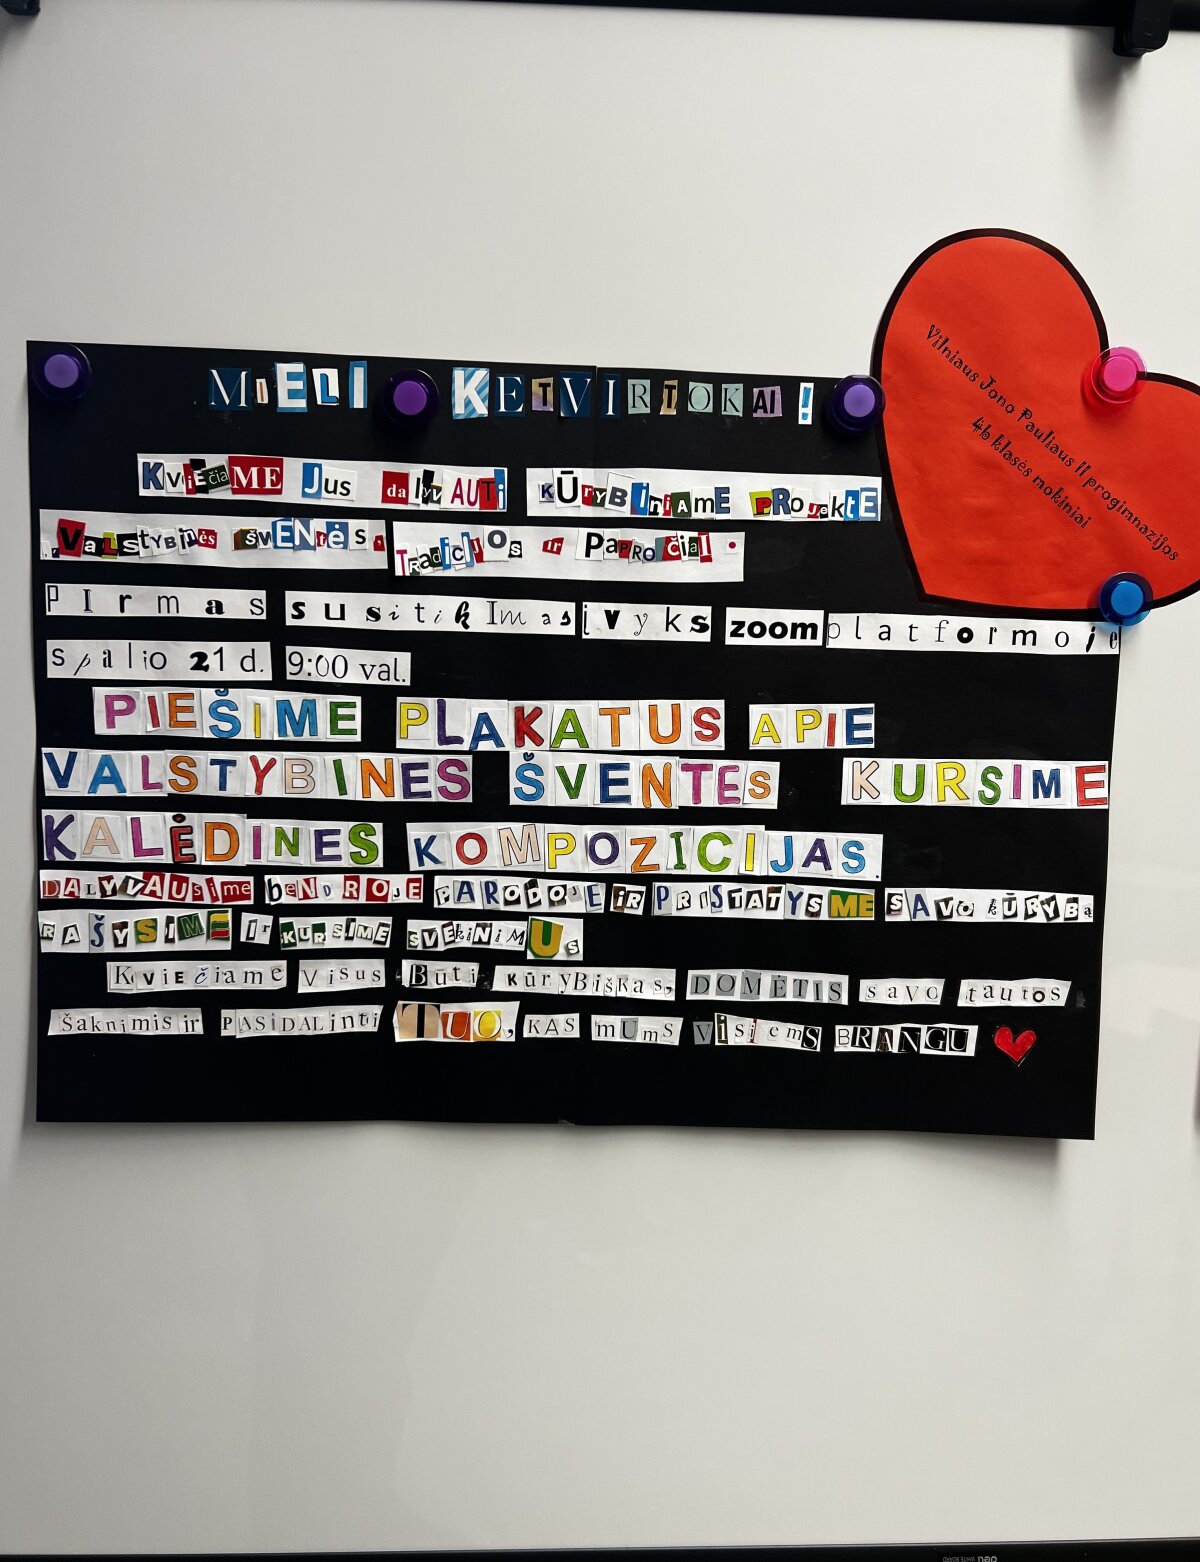 MIELI KETVIRTOKAI!
KviečiaME Jus dalyvAUTi KŪryBIniAME PROjektE
„ValsTYBinės švENtės. Tradicijos ir Papročiai.
PIrmas susitikImas įvyks zoom platformoje
spalio 21d. 9:00 val.
PIEŠIME PLAKATUS APIE
VALSTYBINES ŠVENTES KURSIME
KALĖDINES KOMPOZICIJAS.
DALYVAUsime beNDROJE PARODOJE iR PRISTATYSME SAVO kŪRYBą
RAŠYSIME Ir KURSIME SVEikiNiMUs
KvIEčiame Visus Būti kūryBiškas, DOMĖTIS savo tautos
šaknimis ir PASIDALinti TUO, KAS mums Visiems BRANGU
Vilniaus Jono Pauliaus II progimnazijos
4b klasės mokiniai
deli
WHITE BOARD